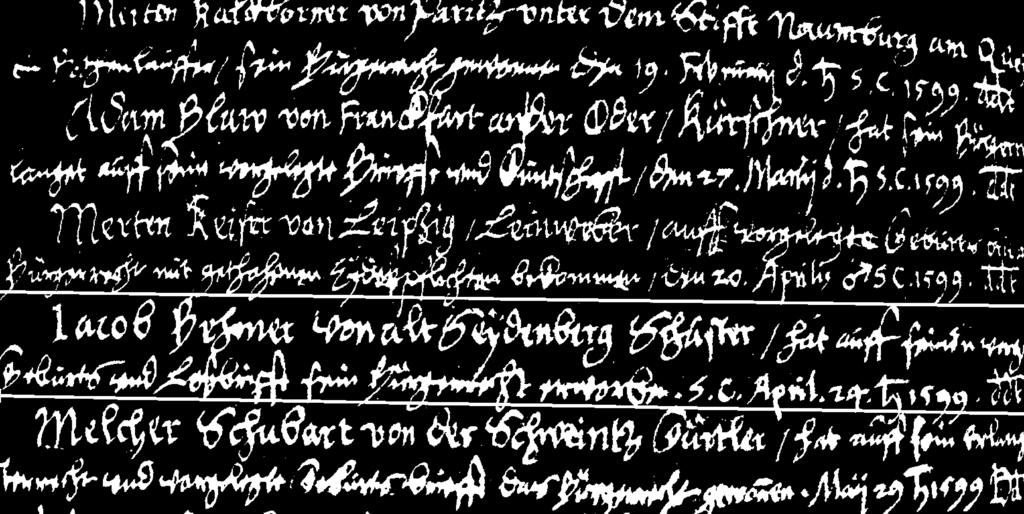 Merten von Paritz vnter dem Stifft Naumburg am
sein Bürgerrecht gewonnen den 19. Februarij d. ♄ S. C. 1599. ddt
Adam Blaw von Franckfurt an der Oder / Kürschner / hat sein
langet auff sein vorgelegte und Kundtschafft / den 27. Martij d. ♄ S. C. 1599. ddt
Merten Keiser von Leipzig / Leinweber / auff vorgelegte Geburts
Bürgerrecht mit gethahnen Eydespflichten bekommen / den 20. Aprilis ♂ S C. 1599. ddt
Iacob Behmer von alt Seydenberg Schuster / hat auff seinen
Geburts und Loßbrieff sein Bürgerrecht erworben. S. C. April. 24. ♄ 1599. ddt
Melcher Schubart von der Schweintz Gürtler / hat auff sein
und vorgelegte Geburts brieff das Bürgerrecht gewonnen. Maij 29 ♄ 1599